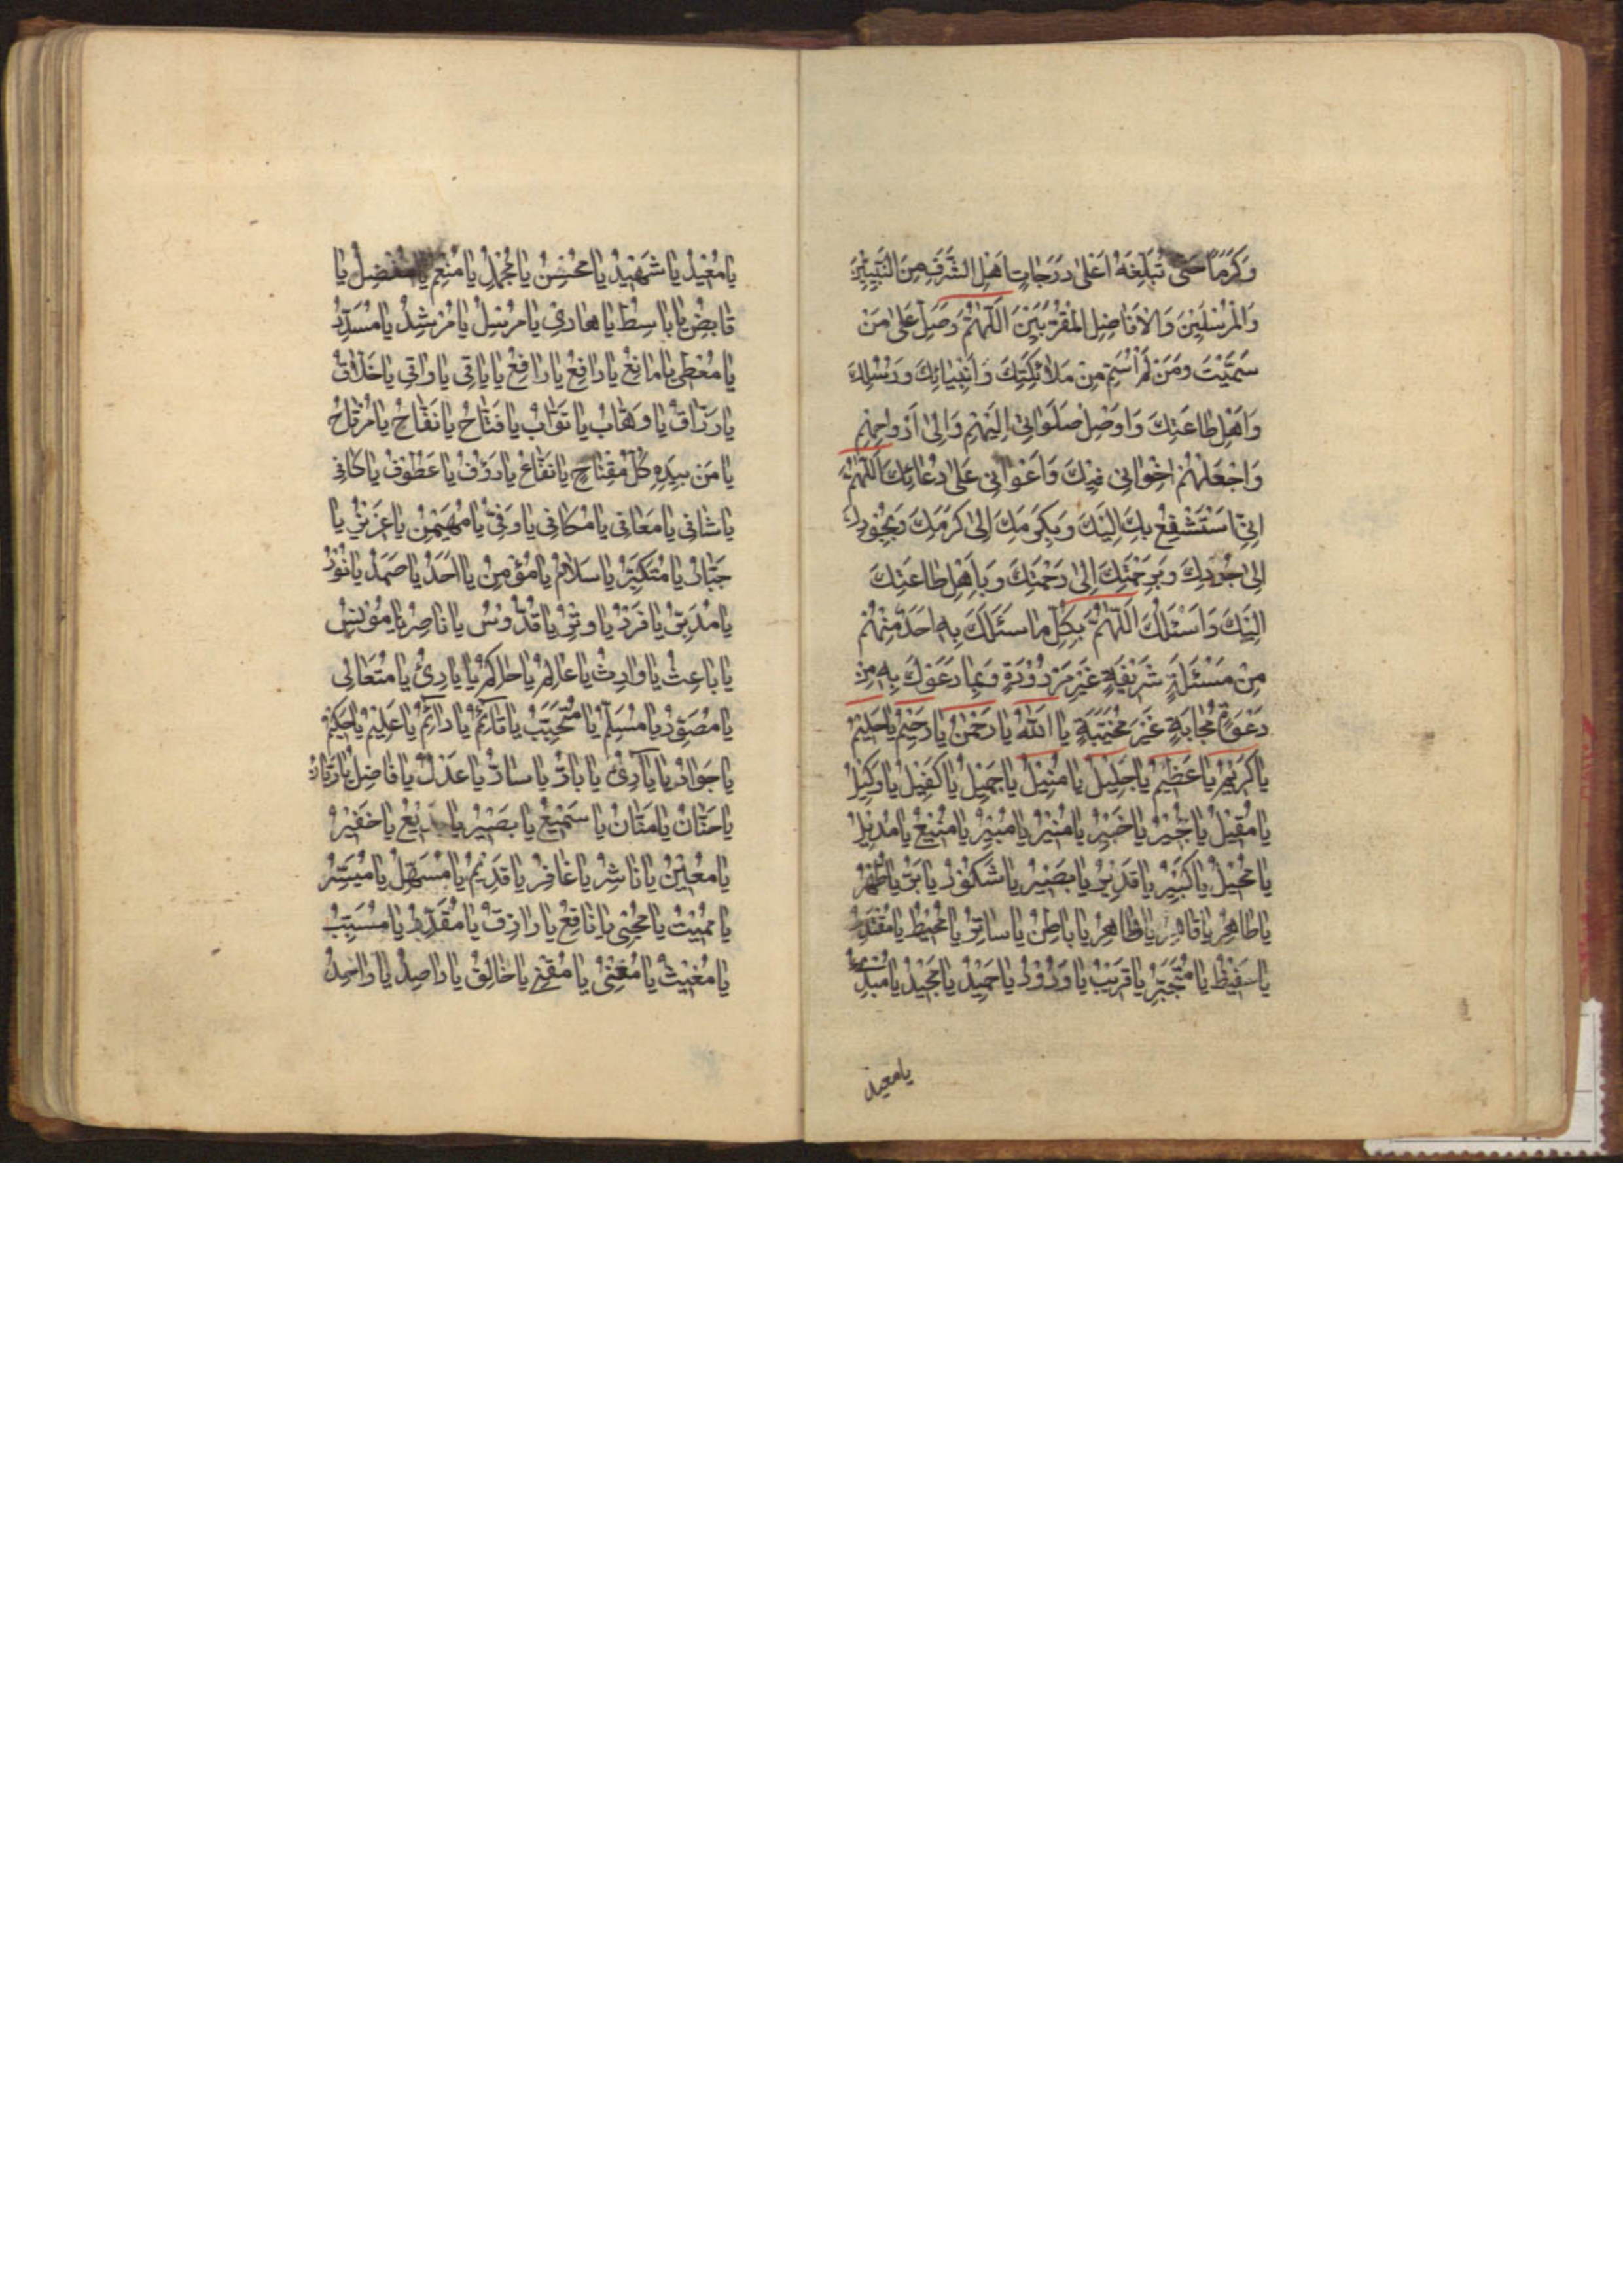 وَكَرَمًا حَتّى تُبَلِّغَهُ اَعْلى دَرَجاتِ اَهْلِ الشَّرَفِ مِنَ النَّبِيّينَ
وَالْمُرْسَلينَ وَالاَفاضِلِ الْمُقَرَّبينَ اَللّهُمَّ وَصَلِّ عَلى مَنْ
سَمَّيْتُ وَمَنْ لَمْ اُسَمِّ مِنْ مَلائِكَتِكَ وَاَنْبِيائِكَ وَرُسُلِكَ
وَاَهْلِ طاعَتِكَ وَاَوْصِلْ صَلَواتى اِلَيْهِمْ وَاِلى اَرْواحِهِمْ
وَاجْعَلْهُمْ اِخْوانى فيكَ وَاَعْوانى عَلى دُعائِكَ اَللّهُمَّ
اِنّى اَسْتَشْفِعُ بِكَ اِلَيْكَ وَبِكَرَمِكَ اِلى كَرَمِكَ وَبِجُودِكَ
اِلى جُودِكَ وَبِرَحْمَتِكَ اِلى رَحْمَتِكَ وَبِاَهْلِ طاعَتِكَ
اِلَيْكَ وَاَسْئَلُكَ اَللّهُمَّ بِكُلِّ ما سَئَلَكَ بِهِ اَحَدٌ مِنْهُمْ
مِنْ مَسْئَلَةٍ شَريفَةٍ غَيْرِ مَرْدُودَةٍ وَبِما دَعَوْكَ بِهِ مِنْ
دَعْوَةٍ مُجابَةٍ غَيْرِ مُخَيَّبَةٍ يا اَللهُ يا رَحْمنُ يا رَحيمُ يا حَليمُ
يا كَريمُ يا عَظيمُ يا جَليلُ يا مُنيلُ يا جَميلُ يا كَفيلُ يا وَكيلُ
يا مُقيلُ يا مُجيرُ يا خَبيرُ يا مُنيرُ يا مُبيرُ يا مَنيعُ يا مُديلُ
يا مُحيلُ يا كَبيرُ يا قَديرُ يا بَصيرُ يا شَكُورُ يا بَرُّ يا طُهْرُ
يا طاهِرُ يا قاهِرُ يا ظاهِرُ يا باطِنُ يا ساتِرُ يا مُحيطُ يا مُقْتَدِرُ
يا حَفيظُ يا مُتَجَبِّرُ يا قَريبُ يا وَدُودُ يا حَميدُ يا مَجيدُ يا مُبْدِئُ
يا معيد
يا مُعيدُ يا شَهيدُ يا مُحْسِنُ يا مُجْمِلُ يا مُنْعِمُ يا مُفْضِلُ يا
قابِضُ يا باسِطُ يا هادى يا مُرْسِلُ يا مُرْشِدُ يا مُسَدِّدُ
يا مُعْطى يا مانِعُ يا دافِعُ يا رافِعُ يا باقى يا واقى يا خَلاّقُ
يا رَزّاقُ يا وَهّابُ يا تَوّابُ يا فَتّاحُ يا نَفّاحُ يا مُرْتاحُ
يا مَنْ بِيَدِهِ كُلُّ مِفْتاحٍ يا نَفّاعُ يا رَؤُفُ يا عَطُوفُ يا كافى
يا شافى يا مُعافى يا مُكافى يا وَفِىُّ يا مُهَيْمِنُ يا عَزيزُ يا
جَبّارُ يا مُتَكَبِّرُ يا سَلامُ يا مُؤْمِنُ يا اَحَدُ يا صَمَدُ يا نُورُ
يا مُدَبِّرُ يا فَرْدُ يا وِتْرُ يا قُدُّوسُ يا ناصِرُ يا مُؤْنِسُ
يا باعِثُ يا وارِثُ يا عالِمُ يا حاكِمُ يا بادِئُ يا مُتَعالى
يا مُصَوِّرُ يا مُسَلِّمُ يا مُتَحَبِّبُ يا قائِمُ يا دائِمُ يا عَليمُ يا حَكيمُ
يا جَوادُ يا بارِئُ يا بارُّ يا سارُّ يا عَدْلُ يا فاضِلُ يا دَيّانُ
يا حَنّانُ يا مَنّانُ يا سَميعُ يا بَصيرُ يا بَديعُ يا خَفيرُ
يا مُعينُ يا ناشِرُ يا غافِرُ يا قَديمُ يا مُسَهِّلُ يا مُيَسِّرُ
يا مُميتُ يا مُحْيى يا نافِعُ يا رازِقُ يا مُقَدِّرُ يا مُسَبِّبُ
يا مُغيثُ يا مُغْنى يا مُقْنى يا خالِقُ يا راصِدُ يا واحِدُ